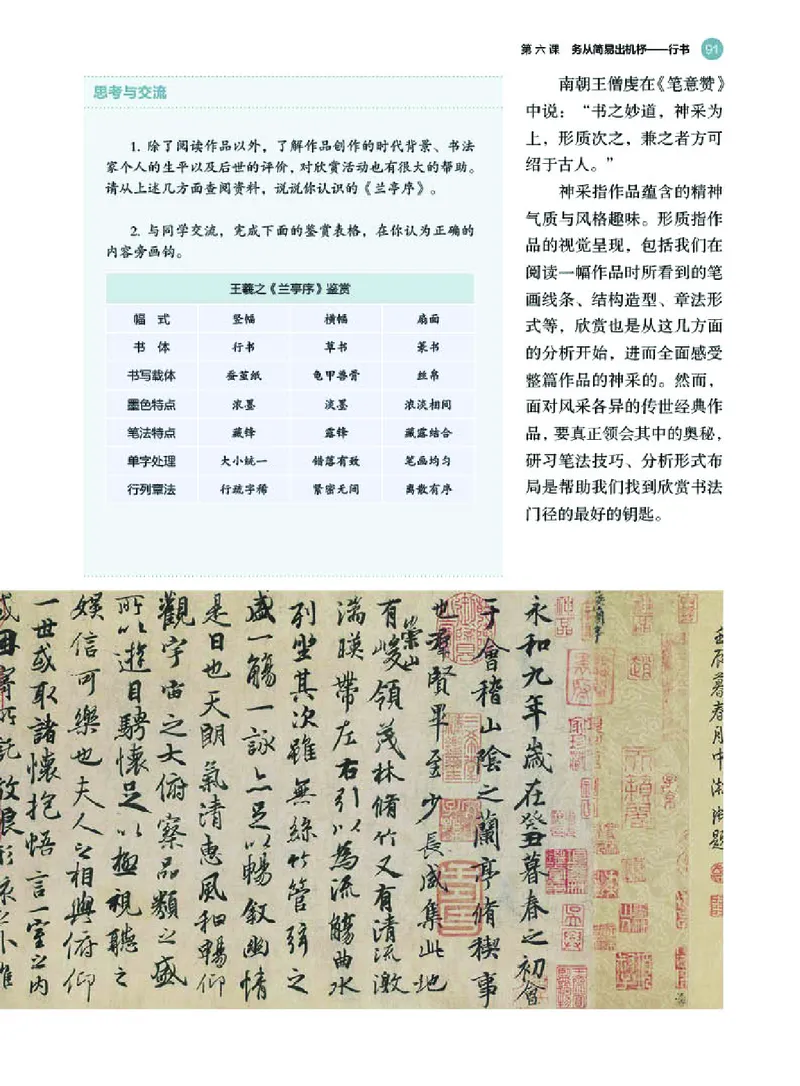 第六课 务从简易出机杼——行书 91
思考与交流
1. 除了阅读作品以外，了解作品创作的时代背景、书法
家个人的生平以及后世的评价，对欣赏活动也有很大的帮助。
请从上述几方面查阅资料，说说你认识的《兰亭序》。
2. 与同学交流，完成下面的鉴赏表格，在你认为正确的
内容旁画钩。
王羲之《兰亭序》鉴赏
幅 式 竖幅 横幅 扇面
书 体 行书 草书 篆书
书写载体 蚕茧纸 龟甲兽骨 丝帛
墨色特点 浓墨 淡墨 浓淡相间
笔法特点 藏锋 露锋 藏露结合
单字处理 大小统一 错落有致 笔画均匀
行列章法 行疏字稀 紧密无间 离散有序
南朝王僧虔在《笔意赞》
中说：“书之妙道，神采为
上，形质次之，兼之者方可
绍于古人。”
神采指作品蕴含的精神
气质与风格趣味。形质指作
品的视觉呈现，包括我们在
阅读一幅作品时所看到的笔
画线条、结构造型、章法形
式等，欣赏也是从这几方面
的分析开始，进而全面感受
整篇作品的神采的。然而，
面对风采各异的传世经典作
品，要真正领会其中的奥秘，
研习笔法技巧、分析形式布
局是帮助我们找到欣赏书法
门径的最好的钥匙。
永和九年歲在癸丑暮春之初會
于會稽山陰之蘭亭脩稧事
也羣賢畢至少長咸集此地
有崇山峻領茂林脩竹又有清流激
湍暎帶左右引以為流觴曲水
列坐其次雖無絲竹管弦之
盛一觴一詠亦足以暢叙幽情
是日也天朗氣清惠風和暢仰
觀宇宙之大俯察品類之盛
所以遊目騁懷足以極視聽之
娱信可樂也夫人之相與俯仰
一世或取諸懷抱悟言一室之内